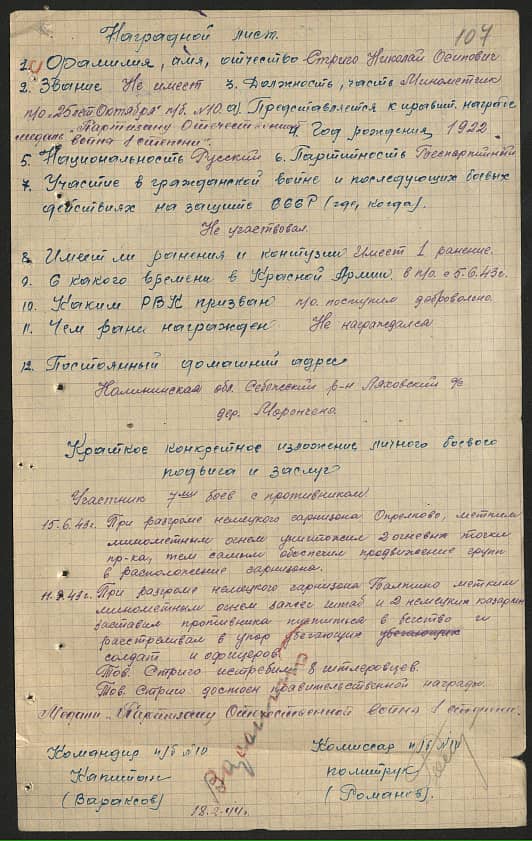 107
Наградной лист.
1. Фамилия, имя, отчество Стриго Николай Осипович
2. Звание Не имеет 3. Должность, часть Минометчик
п/о "25 лет Октября" п/б. №10. а) Представляется к правит. награде
медаль "Партизану Отечественной война 1 степени". 4. Год рождения 1922.
5. Национальность Русский 6. Партийность Беспартийный
7. Участие в гражданской войне и последующих боевых
действиях на защите СССР (где, когда).
Не участвовал.
8. Имеет ли ранения и контузии Имеет 1 ранение.
9. С какого времени в Красной Армии в п/о с 5.6.43г.
10. Каким РВК призван п/о. поступил добровольно
11. Чем ранее награжден Не награждался
12. Постоянный домашний адрес
Калининская обл. Себежский р-н Ляховский
дер.
Краткое конкретное изложение личного боевого
подвига и заслуг
Участник 7ми боев с противником
15.6.43г. При разгроме немецкого гарнизона метким
минометным огнем уничтожил 2 огневых точки
пр-ка, тем самым обеспечил продвижение групп
в расположение гарнизона.
При разгроме немецкого гарнизона метким
минометным огнем зажег штаб и 2 немецких казармы
заставил противника пуститься в бегство и
расстреливал в упор убегающих убегающих
солдат и офицеров.
Тов. Стриго истребил 8 гитлеровцев.
Тов. Стриго достоин правительственной награды
Медали "Партизану Отечественной война 1 степени.
Командир п/б №10 Комиссар п/б №10
Капитан политрук
(Вараксов) (Романов).
18.2.44г.